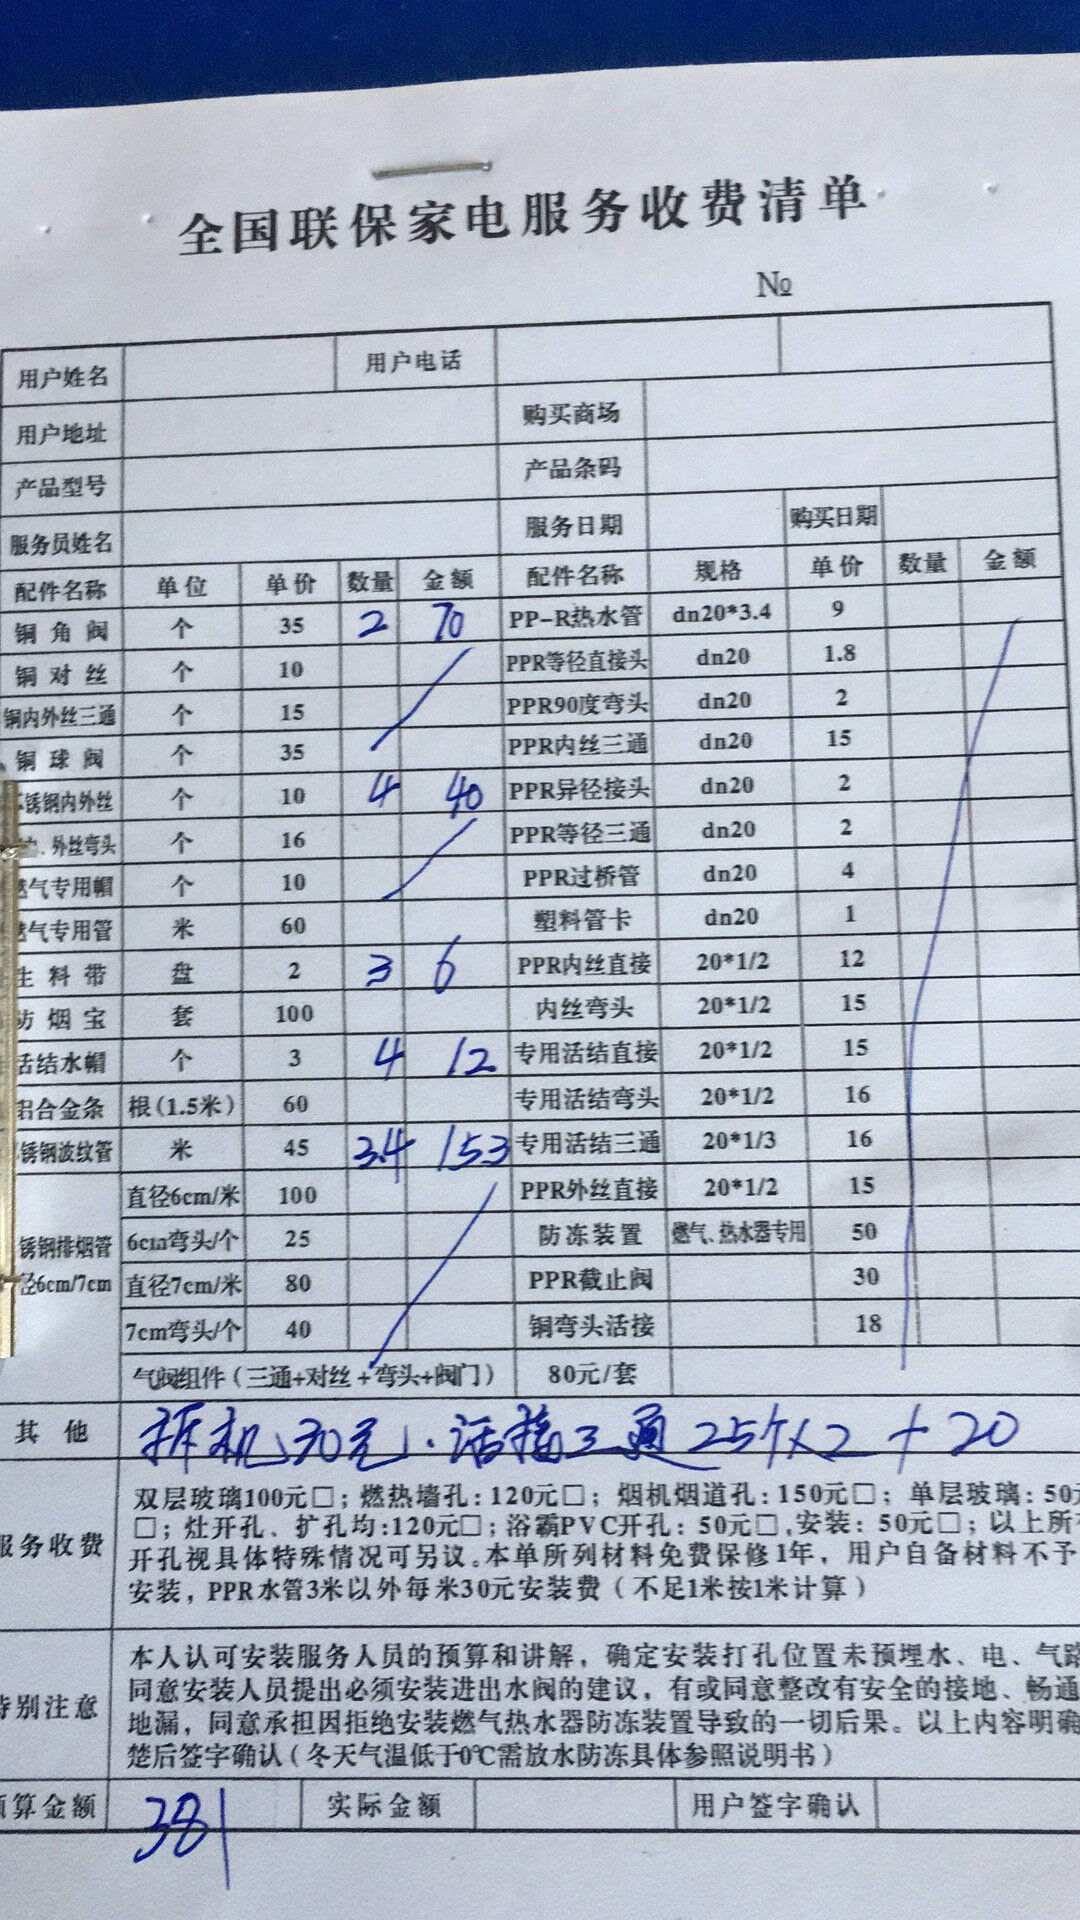 全国联保家电服务收费清单
№
用户姓名 用户电话
用户地址 购买商场
产品型号 产品条码
服务员姓名 服务日期 购买日期
配件名称 单位 单价 数量 金额 配件名称 规格 单价 数量 金额
铜角阀 个 35 2 70 PP-R热水管 dn20*3.4 9
铜对丝 个 10 PPR等径直接头 dn20 1.8
铜内外丝三通 个 15 PPR90度弯头 dn20 2
铜球阀 个 35 PPR内丝三通 dn20 15
锈钢内外丝 个 10 4 40 PPR异径接头 dn20 2
、外丝弯头 个 16 PPR等径三通 dn20 2
燃气专用帽 个 10 PPR过桥管 dn20 4
燃气专用管 米 60 塑料管卡 dn20 1
生料带 盘 2 3 6 PPR内丝直接 20*1/2 12
防烟宝 套 100 内丝弯头 20*1/2 15
活结水帽 个 3 4 12 专用活结直接 20*1/2 15
铝合金条 根(1.5米) 60 专用活结弯头 20*1/2 16
锈钢波纹管 米 45 3.4 153 专用活结三通 20*1/3 16
直径6cm/米 100 PPR外丝直接 20*1/2 15
锈钢排烟管 6cm弯头/个 25 防冻装置 燃气、热水器专用 50
径6cm/7cm 直径7cm/米 80 PPR截止阀 30
7cm弯头/个 40 铜弯头活接 18
气阀组件(三通+对丝+弯头+阀门) 80元/套
其他 拆机30元、活接三通25个×2+20
双层玻璃100元□;燃热墙孔:120元□;烟机烟道孔:150元□;单层玻璃:50元
□;灶开孔、扩孔均:120元□;浴霸PVC开孔:50元□,安装:50元□;以上所有
服务收费 开孔视具体特殊情况可另议。本单所列材料免费保修1年,用户自备材料不予
安装,PPR水管3米以外每米30元安装费(不足1米按1米计算)
本人认可安装服务人员的预算和讲解,确定安装打孔位置未预埋水、电、气路
特别注意 同意安装人员提出必须安装进出水阀的建议,有或同意整改有安全的接地、畅通
地漏,同意承担因拒绝安装燃气热水器防冻装置导致的一切后果。以上内容明确
楚后签字确认(冬天气温低于0℃需放水防冻具体参照说明书)
预算金额 381 实际金额 用户签字确认